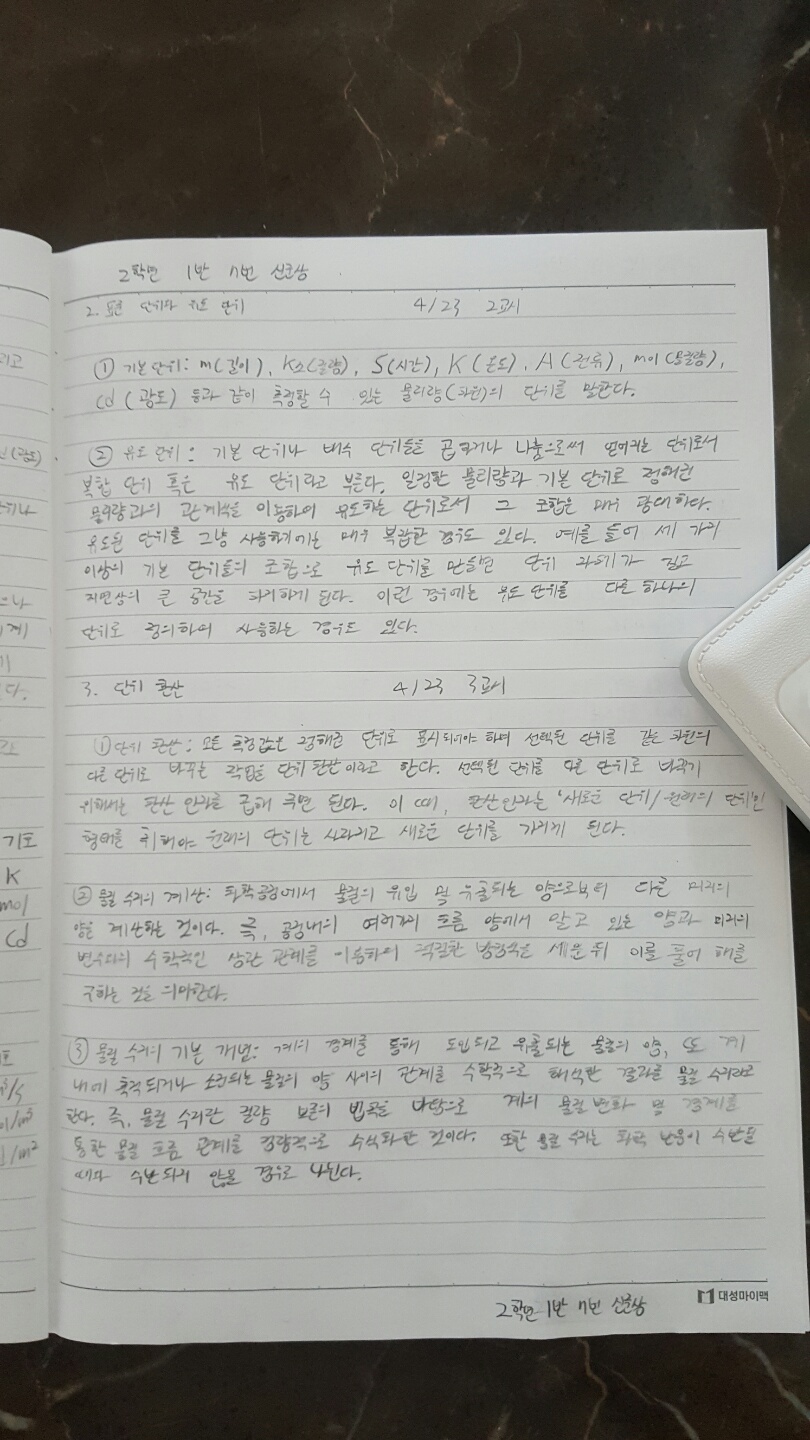 2학년 1반 7번
2. 표준 단위와 유도 단위 4/23 2교시
① 기본단위: m(길이), kg(질량), S(시간), K(온도), A(전류), mol(물질량),
cd(광도) 등과 같이 측정할 수 있는 물리량(차원)의 단위를 말한다.
② 유도 단위: 기본 단위나 배수 단위들을 곱하거나 나눔으로써 얻어지는 단위로서
복합 단위 혹은 유도 단위라고 부른다. 일정한 물리량과 기본 단위로 정해진
물리량과의 관계식을 이용하여 유도하는 단위로서 그 조합은 매우 광대하다.
유도된 단위를 그냥 사용하기에는 매우 복잡한 경우도 있다. 예를 들어 세 가지
이상의 기본 단위들의 조합으로 유도 단위를 만들면 단위 자체가 길고
지면상의 큰 공간을 차지하게 된다. 이런 경우에는 유도 단위를 다른 하나의
단위로 정의하여 사용하는 경우도 있다.
3. 단위 환산 4/23 3교시
① 단위 환산: 모든 측정값은 정해준 단위로 표시되어야 하며 선택된 단위를 같은 차원의
다른 단위로 바꾸는 작업을 단위 환산이라고 한다. 선택된 단위를 다른 단위로 바꾸기
위해서는 환산 인자를 곱해 주면 된다. 이 때, 환산인자는 '새로운 단위/원래의 단위'인
형태를 취해야 원래의 단위는 사라지고 새로운 단위를 가지게 된다.
② 물질 수지의 계산: 화학공정에서 물질의 유입 및 유출되는 양으로부터 다른 미지의
양을 계산하는 것이다. 즉, 공정내의 여러가지 흐름 양에서 알고 있는 양과 미지의
변수와의 수학적인 상관 관계를 이용하여 적절한 방정식을 세운 뒤 이를 풀어 해를
구하는 것을 의미한다.
③ 물질 수지의 기본 개념: 계의 경계를 통해 도입되고 유출되는 물질의 양, 또 계
내에 축적되거나 소모되는 물질의 양 사이의 관계를 수학적으로 해석한 결과를 물질 수지라고
한다. 즉, 물질 수지란 질량 보존의 법칙을 바탕으로 계의 물질 변화 및 경계를
통한 물질 흐름 관계를 정량적으로 수식화한 것이다. 또한 물질 수지는 화학 반응이 수반될
때와 수반되지 않을 경우로 나뉜다.
대성마이맥
2학년 1반 7번
(광도)
기호
K
mol
Cd